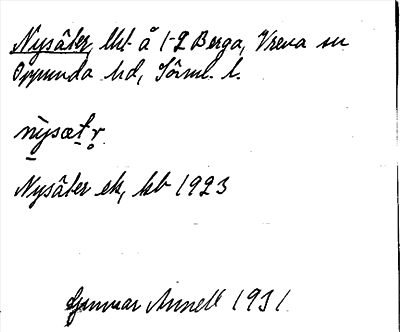 Nysäter, lht å 1-2 Berga, Vrena sn
Oppunda hd, Sörml. l.
nỳsætr̥.
Nysäter ek, kb 1923
Gunnar Annell 1931